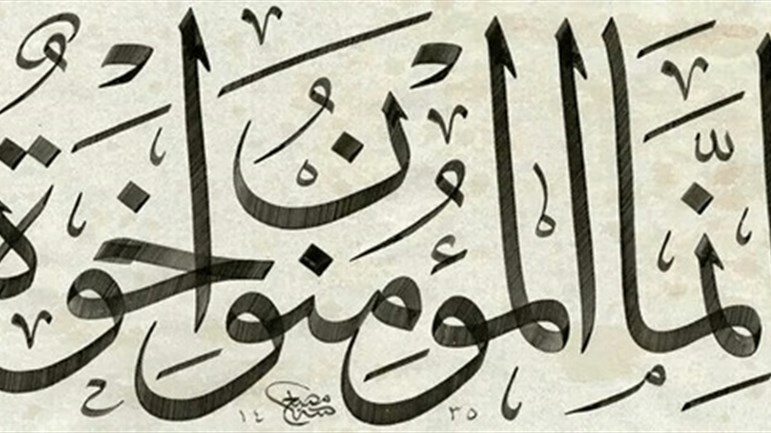 إنما المؤمنون إخوة
١٤٣٥